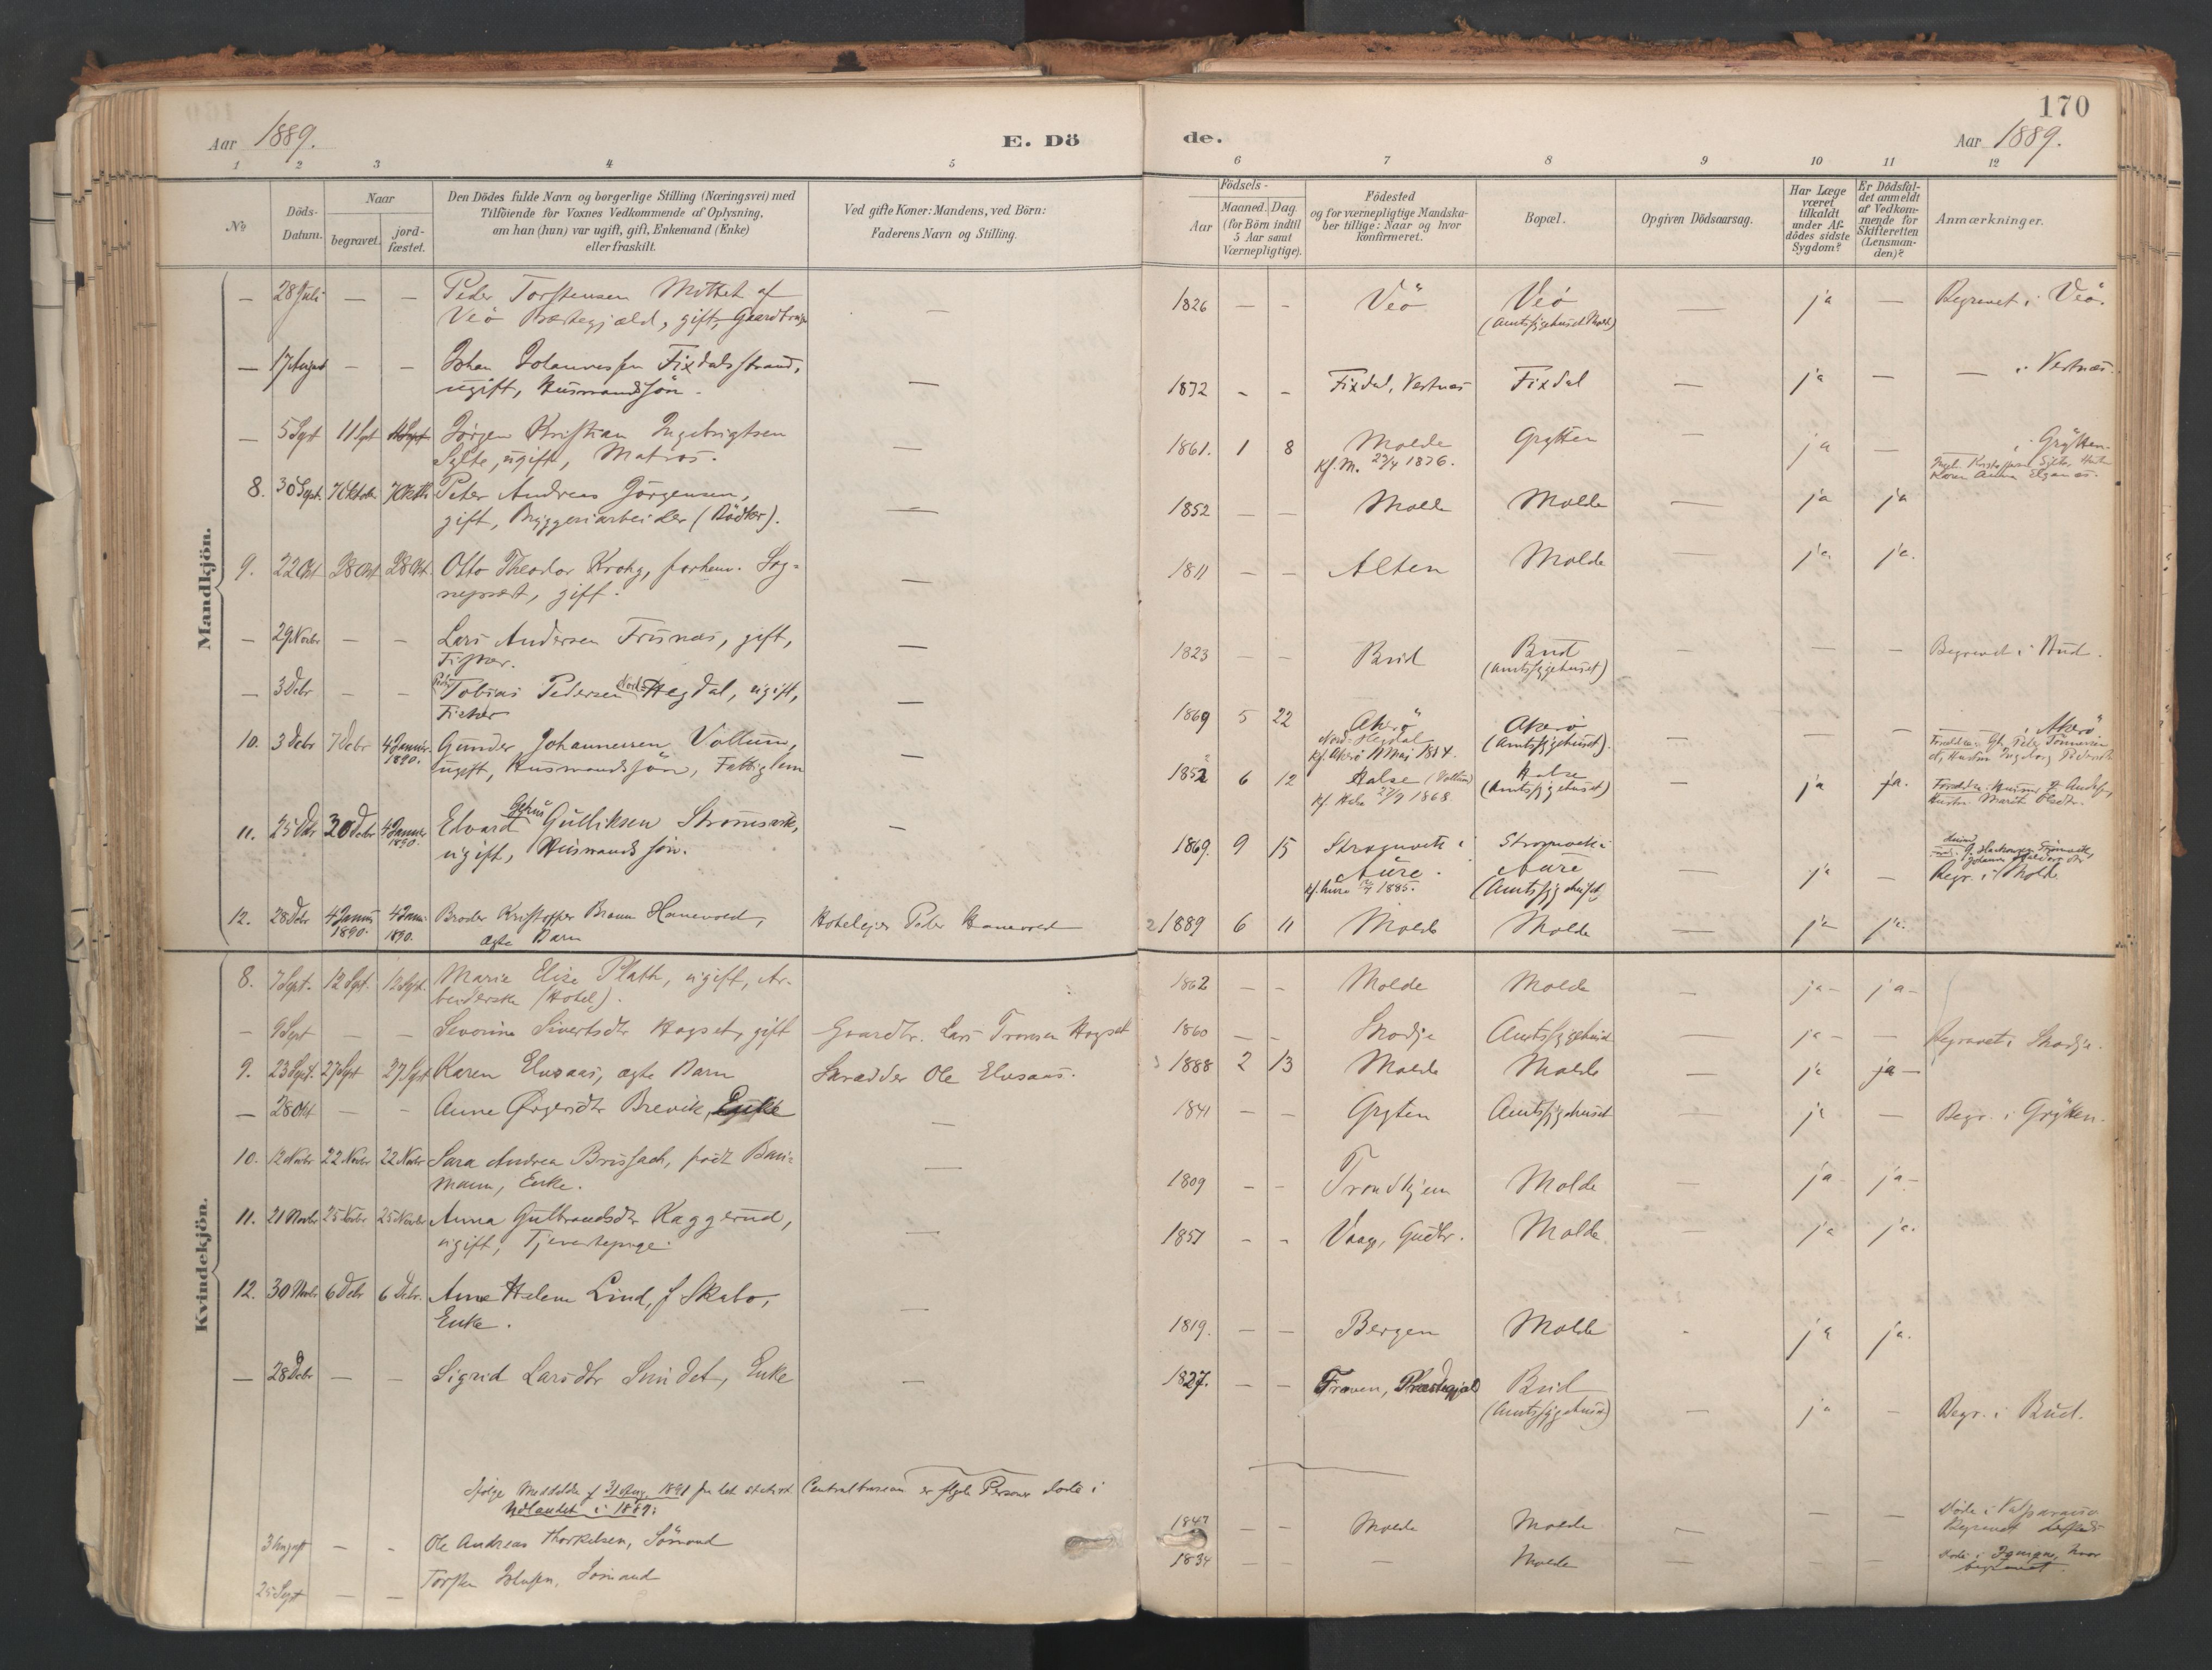 170
Aar 1889. E. Dö de. Aar 1889.
1 2 3 4 5 6 7 8 9 10 11 12
No
Döds-Datum.
Naar begravet. jordfæstet.
Den Dödes fulde Navn og borgerlige Stilling (Næringsvei) med
Tilföiende for Voxnes Vedkommende af Oplysning,
om han (hun) var ugift, gift, Enkemand (Enke)
eller fraskilt.
Ved gifte Koner: Mandens, ved Börn:
Faderens Navn og Stilling.
Födsels-
Aar Maaned. Dag.
(for Börn indtil
5 Aar samt
Værnepligtige).
Födested
og for værnepligtige Mandska-
ber tillige: Naar og hvor
konfirmeret.
Bopæl.
Opgiven Dödsaarsag.
Har Læge
været
tilkaldt
under Af-
dödes sidste
Sygdom?
Er Dödsfal-
det anmeldt
af Vedkom-
mende for
Skifteretten
(Lensman-
den)?
Anmærkninger.
Mandkjön.
— 28 Juli — — Peder Torstensen Mittet af — 1826 — — Veö Veö — ja — Begravet i Veö.
Veö Præstegjæld, gift, (Amtssygehuset Molde)
— 17 August — — Johan Johannessen Fixdalsstrand, — 1872 - - Fixdal, Vestnæs Fixdal — ja — — i Vestnæs.
ugift, Husmandssön.
— 5 Sept 11 Sept 11 Sept Jörgen Kristian Ingebrigtsen — 1861. 1 8 Molde Grytten — ja — i Grytten
Sylte, ugift, Matros. Kf. M. 1876.
8. 30 Sept. 7 Oktober 7 Oktb Peter Andreas Jörgensen, — 1852 — — Molde Molde — ja ja
gift, Bryggeriarbeider (Bödker).
9. 22 Okt 28 Okt 28 Okt. Otto Theodor Krohg, forhenv. Sog- — 1811 — — Alten Molde — ja. ja.
nepræst, gift.
— 29 Novbr — — Lars Andersen gift, — 1823 — — Bud Bud — — — Begravet i Bud.
Fisker. (Amtssygehuset)
— 3 Debr — — Tobias Pedersen Nord-Hegdal, ugift, — 1869 5 22 Akerö Akerö i Akerö
Fisker Nord-Hegdal (Amtssygehuset).
Kf. Akerö Mai 1884.
10. 3 Debr 7 Debr 4 Januar 1890. Gunder Johannessen Voltum, 1852 6 12 Halse (Voltum) Halse — ja ja.
ugift, Husmandssön, Fattiglem Kf. Halse 1868. (Amtssygehuset)
11. 25 Debr 30 Debr 4 Januar 1890. Edvard Gulliksen Strömsvik, — 1869. 9 15 i i
ugift, Husmandssön. Aure. Aure — ja — Begr. i Molde
Kf. Aure 1885. (Amtssygehuset)
12. 28 Debr 4 Januar 1890. 4 Janu. 1890. Broder Kristoffer Braun Hanevold, Hoteleier Peder Hanevold 1889 6 11 Molde Molde — ja ja.
ægte Barn
Kvindekjön.
8. 7 Sept. 12 Sept. 12 Sept. Marie Elise Plath, ugift, Ar- 1862 — — Molde Molde — ja- ja-
beiderske (Hotel).
— 9 Sept — — Severine Sivertsdtr Hagset, gift Gaardbr. Lars Tronsen Hagset 1860 — - Skodje Amtssygehuset — ja- — Begravet i Skodje.
9. 23 Sept. 27 Sept 27 Sept Karen Elvsaas, ægte Barn Skrædder Ole Elvsaas. 1888 2 13 Molde Molde — ja ja —
— 28 Okt — - Anne Brevik, Enke — 1841 — — Grytten Amtssygehuset — ja — Begr. i Grytten.
10. 12 Novbr 22 Novbr 22 Novbr Sara Andrea Brissach, född Bau- — 1809 - - Trondhjem Molde — ja- ja-
mann, Enke.
11. 21 Novbr 25 Novbr 25 Novbr Anna Gulbrandsdtr Kaggerud, — 1857 — - Vaage, Gudbr. Molde — ja ja.
ugift, Tjenestepige.
12. 30 Novbr 6 Debr 6 Debr. Anne Helene Lind, f. Skabo, — 1819. — — Bergen Molde - ja ja.
Enke.
— 28 Debr — — Sigrid Larsdtr Enke — 1827. — — Froen, Præstegjæld Bud — ja — Begr. i Bud.
(Amtssygehuset)
Ifölge Meddelelse af 31 Aug. 1891 fra det statist. Centralbureau er flgde Personer döde i
Udlandet i 1889:
3 August — - Ole Andreas Thorkelsen, Sömand 1847 — — Molde Molde — — — Döde i Valparaiso
Begravet
25 Sept — — Torsten Sömand 1834 — — — Molde — — — Döde i hvor
begravet.